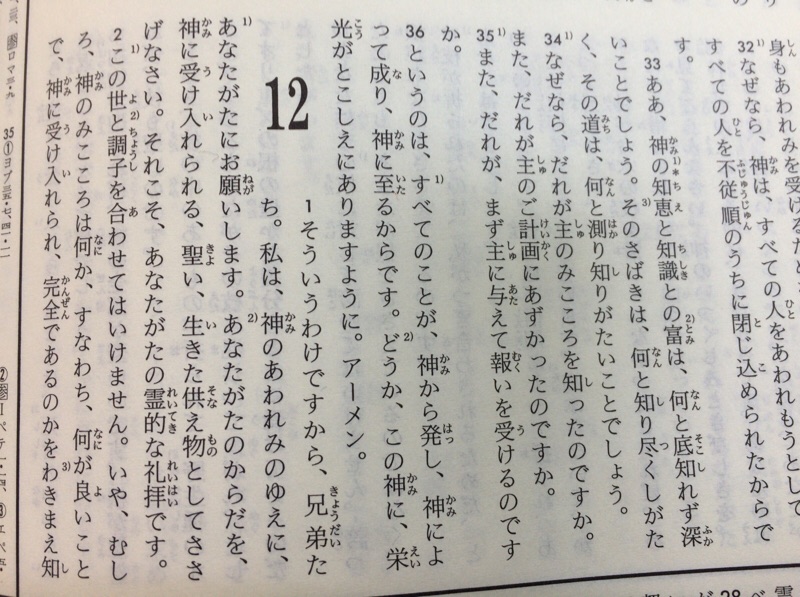 身もあわれみを受けるた
32なぜなら、神は、すべての人をあわれもうとして、
すべての人を不従順のうちに閉じ込められたからで
す。
33ああ、神の知恵と知識との富は、何と底知れず深
いことでしょう。そのさばきは、何と知り尽くしがた
く、その道は、何と測り知りがたいことでしょう。
34なぜなら、だれが主のみこころを知ったのですか。
また、だれが主のご計画にあずかったのですか。
35また、だれが、まず主に与えて報いを受けるのです
か。
36というのは、すべてのことが、神から発し、神によ
って成り、神に至るからです。どうか、この神に、栄
光がとこしえにありますように。アーメン。
12
1そういうわけですから、兄弟た
ち。私は、神のあわれみのゆえに、
あなたがたにお願いします。あなたがたのからだを、
神に受け入れられる、聖い、生きた供え物としてささ
げなさい。それこそ、あなたがたの霊的な礼拝です。
2この世と調子を合わせてはいけません。いや、むし
ろ、神のみこころは何か、すなわち、何が良いこと
で、神に受け入れられ、完全であるのかをわきまえ知
35①ヨブ三五・七、四一・一一